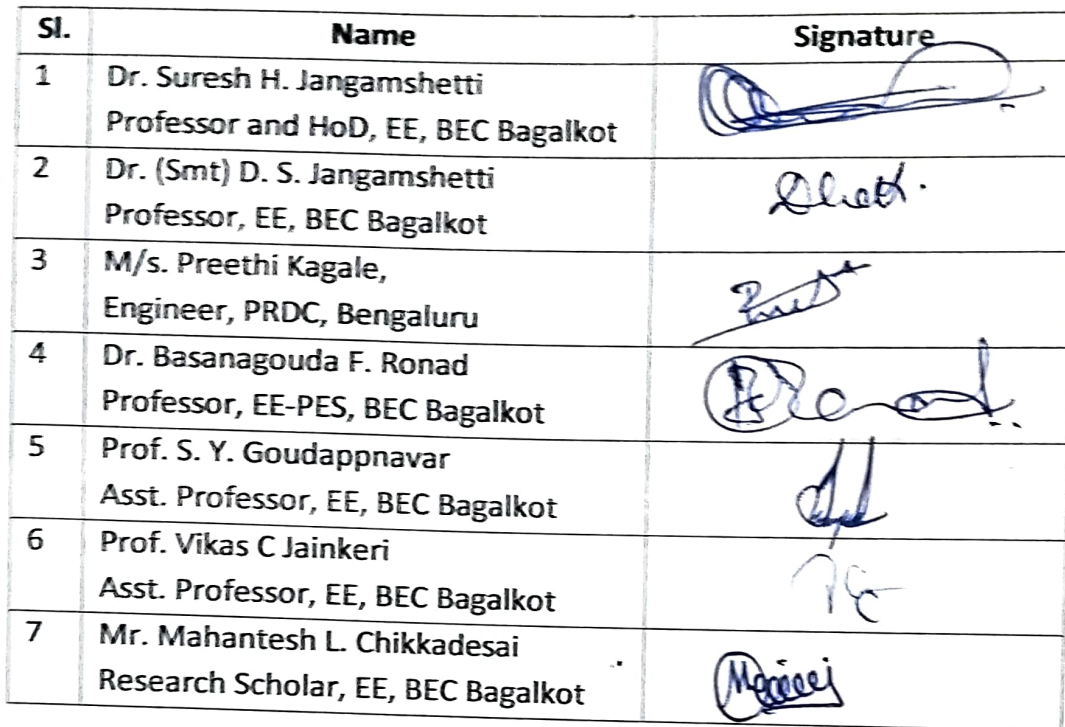 Sl. Name Signature
1 Dr. Suresh H. Jangamshetti
Professor and HoD, EE, BEC Bagalkot
2 Dr. (Smt) D. S. Jangamshetti
Professor, EE, BEC Bagalkot
3 M/s. Preethi Kagale,
Engineer, PRDC, Bengaluru
4 Dr. Basanagouda F. Ronad
Professor, EE-PES, BEC Bagalkot
5 Prof. S. Y. Goudappnavar
Asst. Professor, EE, BEC Bagalkot
6 Prof. Vikas C Jainkeri
Asst. Professor, EE, BEC Bagalkot
7 Mr. Mahantesh L. Chikkadesai
Research Scholar, EE, BEC Bagalkot